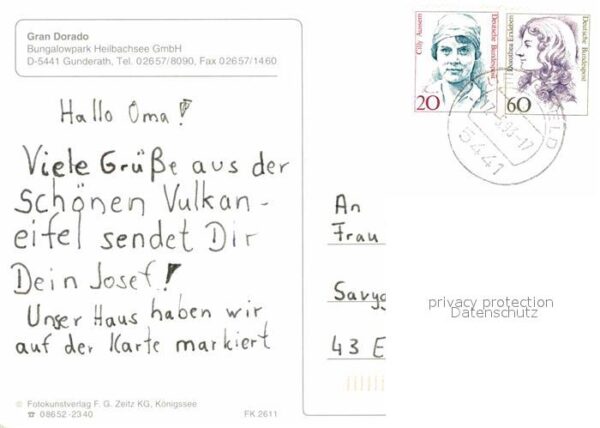 Gran Dorado
Bungalowpark Heilbachsee GmbH
D-5441 Gunderath, Tel. 02657/8090, Fax 02657/1460
Hallo Oma!
Viele Grüße aus der
Schönen Vulkan-
eifel sendet Dir
Dein Josef!
Unser Haus haben wir
auf der Karte markiert
© Fotokunstverlag F. G. Zeitz KG, Königssee
☎ 08652-2340
FK 2611
Cilly Aussem
Deutsche Bundespost
20
Dorothea Erxleben
Deutsche Bundespost
60
5441
An
Frau
43 E
privacy protection
Datenschutz